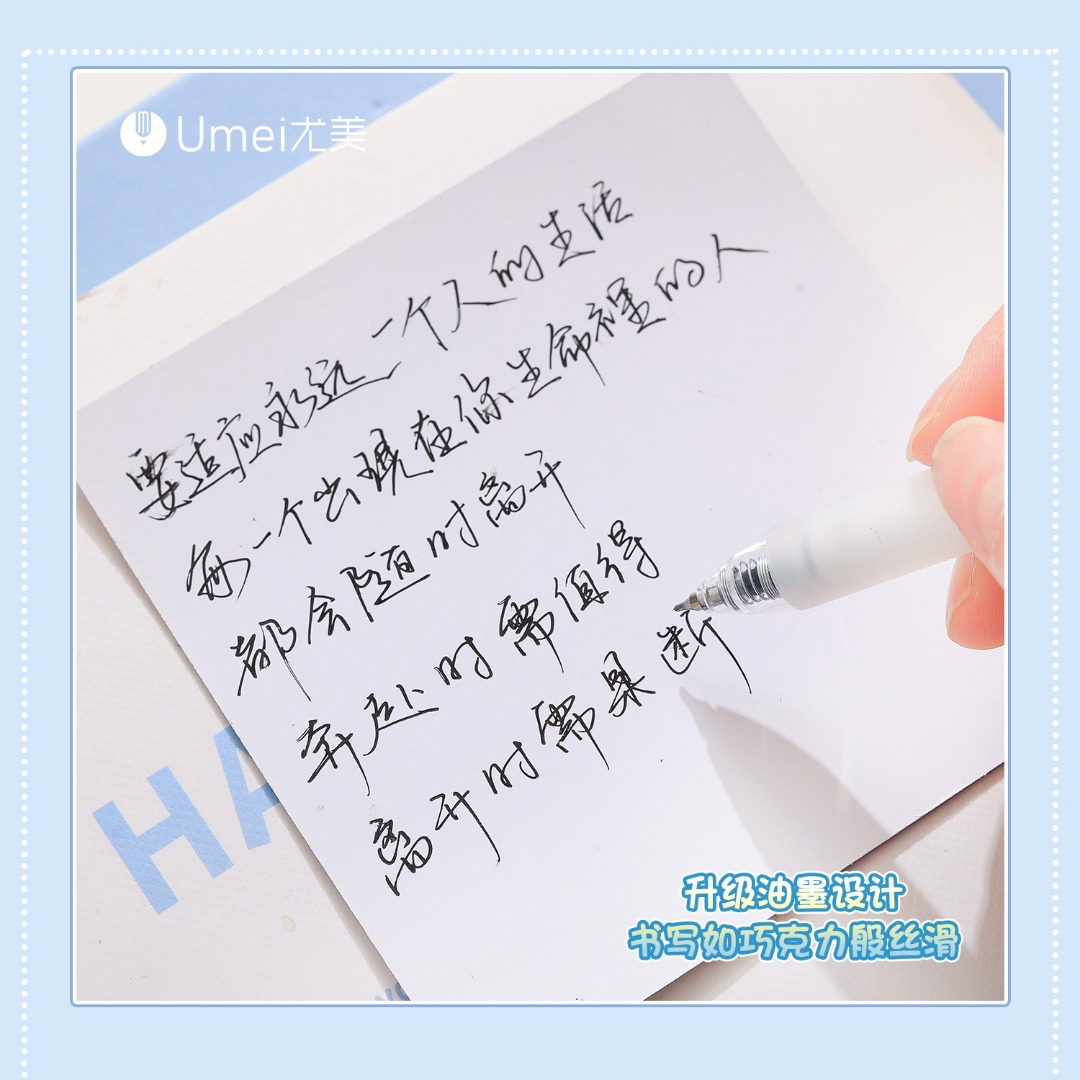 Umei尤美
要适应永远一个人的生活
每一个出现在你生命裡的人
都会随时离开
奔赴时需值得
离开时需果断
HA
升级油墨设计
书写如巧克力般丝滑